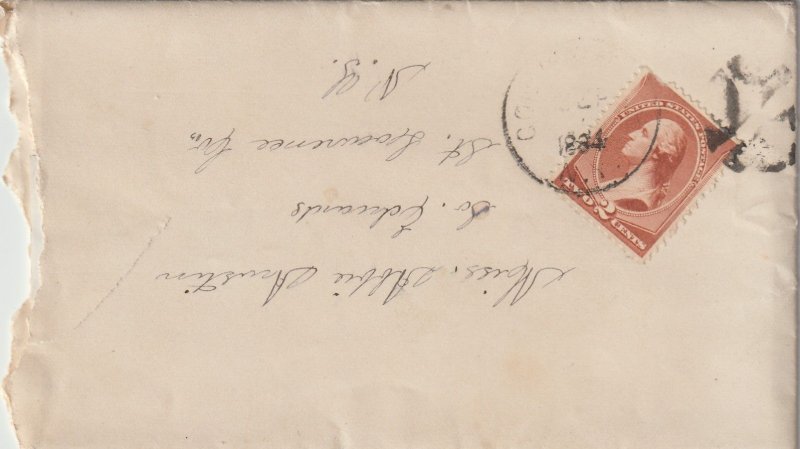 Miss. Abbie Austin
So. Edwards
St. Lawrence Co.,
N.Y.
1884
UNITED STATES POSTAGE
TWO 2 CENTS